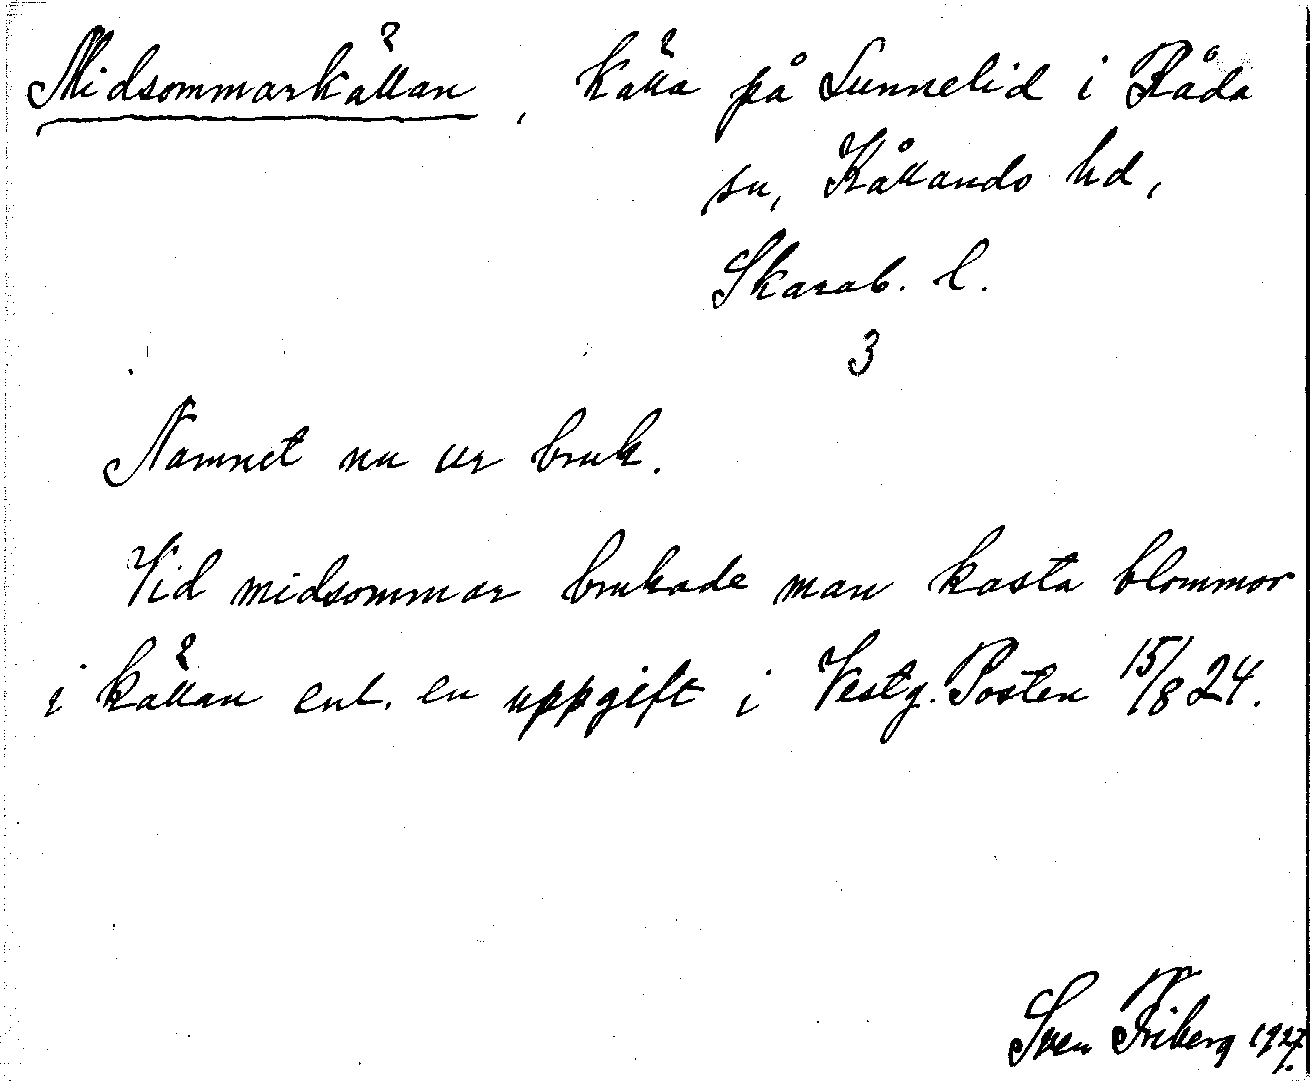 Midsommarkällan, källa på Sunnelid i Råda
sn, Kållands hd,
Skarab. l.
3
Namnet nu ur bruk.
Vid midsommar brukade man kasta blommor
i källan enl. en uppgift i Vestg. Posten 15/8 24.
Sven Friberg 1927.